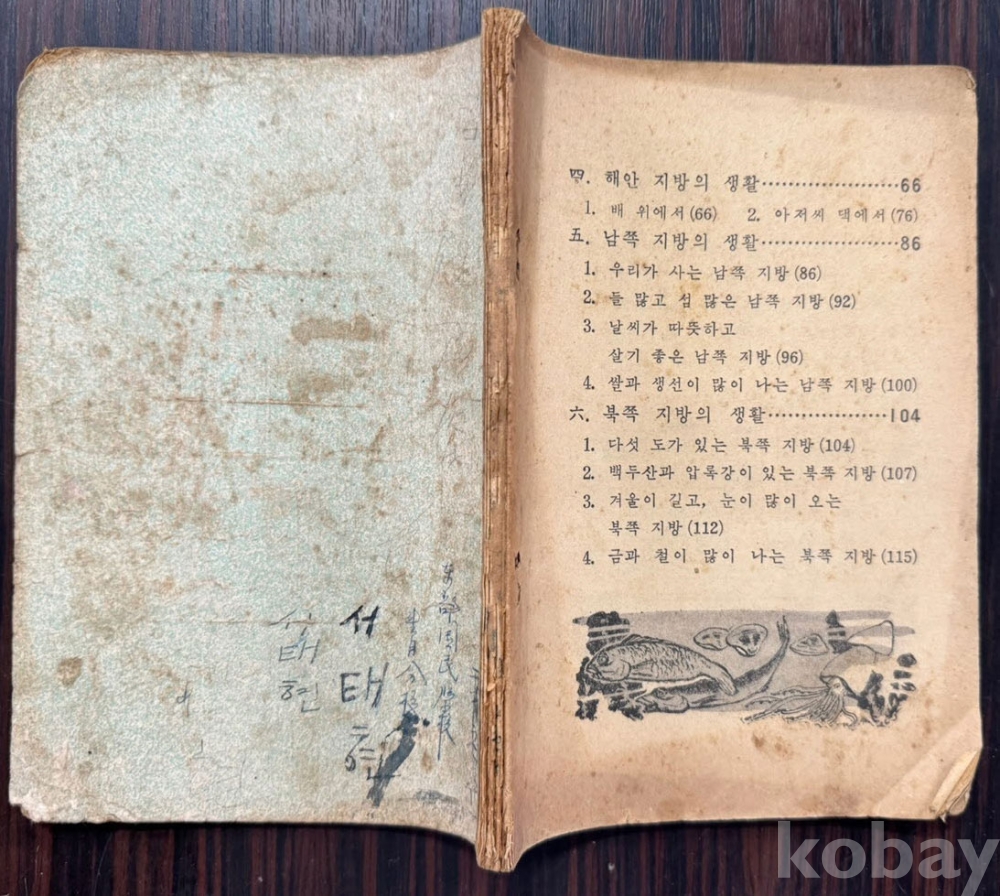 서태현
서태현
四. 해안 지방의 생활……………………66
1. 배 위에서(66) 2. 아저씨 댁에서(76)
五. 남쪽 지방의 생활……………………86
1. 우리가 사는 남쪽 지방(86)
2. 들 많고 섬 많은 남쪽 지방(92)
3. 날씨가 따뜻하고
살기 좋은 남쪽 지방(96)
4. 쌀과 생선이 많이 나는 남쪽 지방(100)
六. 북쪽 지방의 생활…………………104
1. 다섯 도가 있는 북쪽 지방(104)
2. 백두산과 압록강이 있는 북쪽 지방(107)
3. 겨울이 길고, 눈이 많이 오는
북쪽 지방(112)
4. 금과 철이 많이 나는 북쪽 지방(115)
kobay